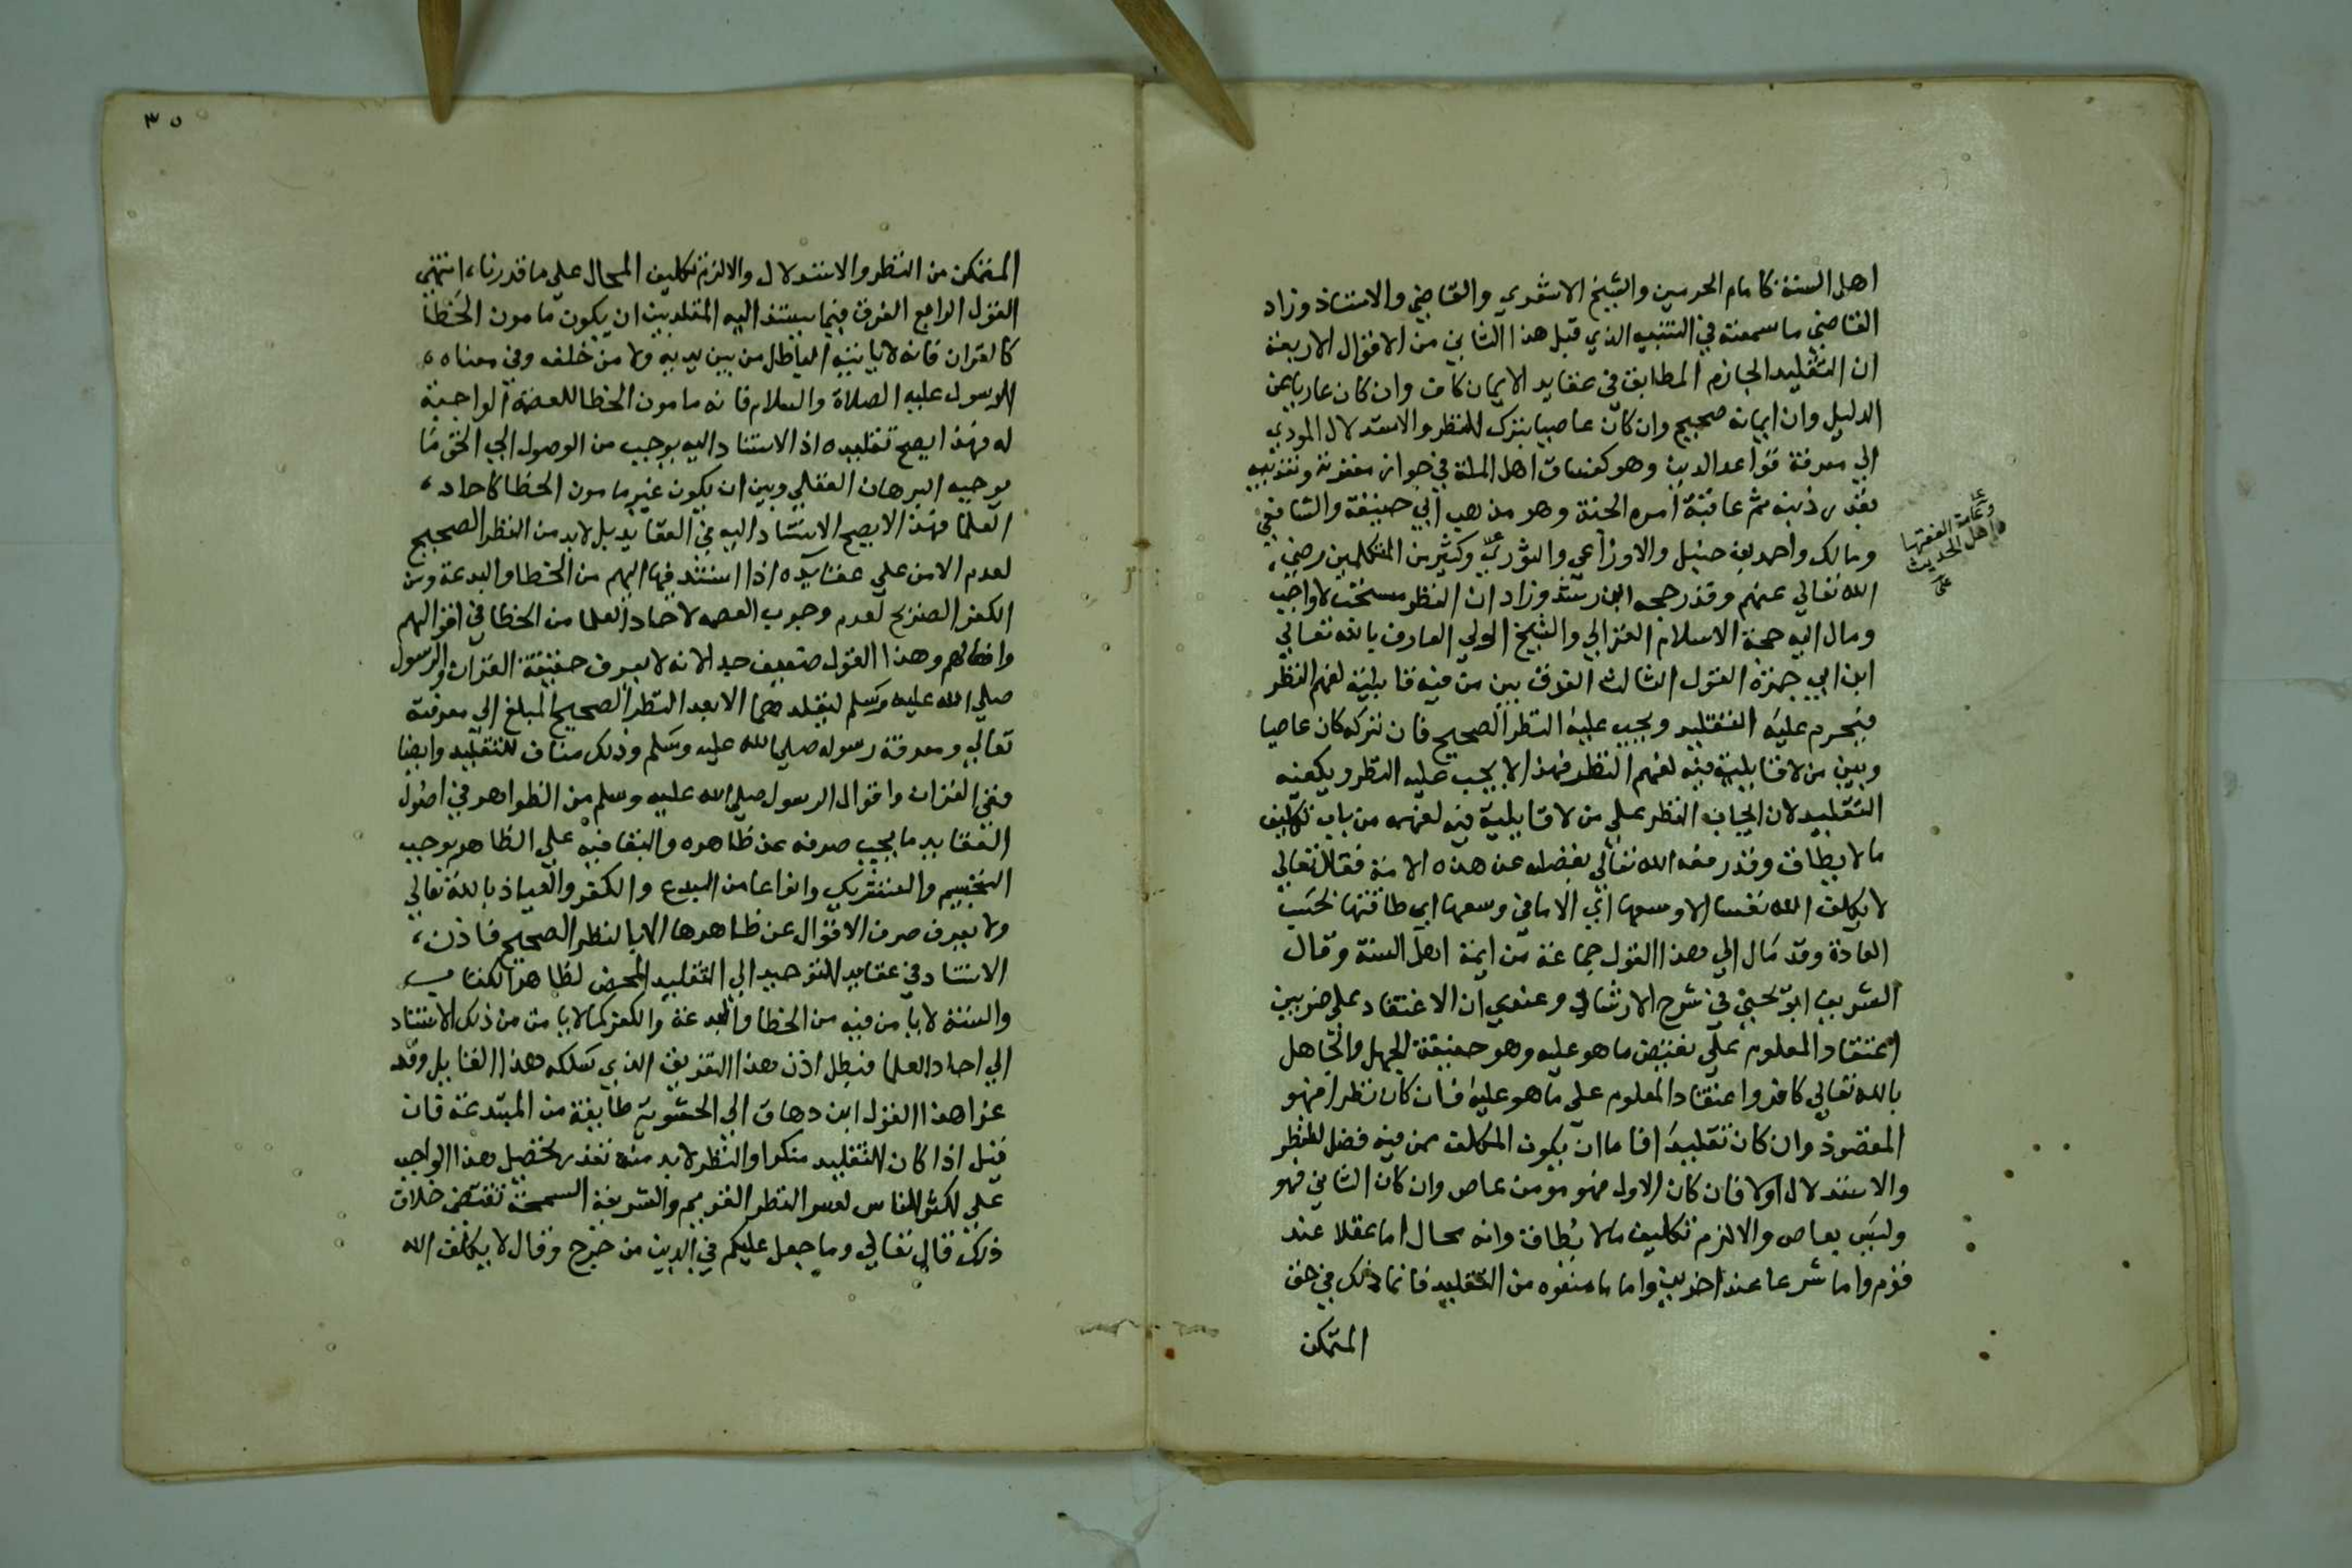 اهل السنة كامام الحرمين والشيخ الاشعري والقاضي والاستاذ وزاد
القاضي ما سمعته في التنبيه الذي قبل هذا الثاني من الاقوال الاربعة
ان التقليد الجازم المطابق في عقايد الايمان كاف وان كان عاريا عن
الدليل وان ايمانه صحيح وان كان عاصيا بترك النظر والاستدلال المودي
الي معرفة قواعد الدين وهو كفساق اهل الملة في جواز مغفرته وتعذيبه
بقدر ذنبه ثم عاقبة امره الجنة وهو مذهب ابي حنيفة والشافعي
ومالك واحمد بن حنبل والاوزاعي والثوري وكثير من المتكلمين رضي
وعامة الفقها
واهل الحديث
الله تعالي عنهم وقد رجحه ابن رشد وزاد ان النظر مستحب لا واجب
ومال اليه حجة الاسلام الغزالي والشيخ الولي العارف بالله تعالي
ابن ابي جمرة القول الثالث الفرق بين من فيه قابلية لفهم النظر
فيحرم عليه التقليد ويجب عليه النظر الصحيح فان تركه كان عاصيا
وبين من لا قابلية فيه لفهم النظر فهذا لا يجب عليه النظر ويكفيه
التقليد لان ايجاب النظر علي من لا قابلية فيه لفهمه من باب تكليف
ما لا يطاق وقد رفعه الله تعالي بفضله عن هذه الامة فقال تعالي
لا يكلف الله نفسا الا وسعها اي الا ما في وسعها اي طاقتها بحسب
العادة وقد مال الي هذا القول جماعة من ايمة اهل السنة وقال
الشريف ابو يحيي في شرح الارشاد وعندي ان الاعتقاد علي ضربين
اعتقاد المعلوم علي نقيض ما هو عليه وهو حقيقة الجهل والجاهل
بالله تعالي كافر واعتقاد المعلوم علي ما هو عليه فان كان نظرا فهو
المقصود وان كان تقليدا فاما ان يكون المكلف ممن فيه فضل للنظر
والاستدلال اولا فان كان الاول فهو مومن عاص وان كان الثاني فهو
وليس بعاص والا لزم تكليف ما لا يطاق وانه محال اما عقلا عند
قوم واما شرعا عند اخرين واما ما منعوه من التقليد فانما ذلك في حق
المتمكن
٣٥
المتمكن من النظر والاستدلال والا لزم تكليف المحال علي ما قدرناه انتهي
القول الرابع الفرق فيما يستند اليه المقلد بين ان يكون مامون الخطا
كالقران فانه لا ياتيه الباطل من بين يديه ولا من خلفه وفي معناه
الرسول عليه الصلاة والسلام فانه مامون الخطا للعصمة الواجبة
له فهذا يصح تقليده اذ الاستناد اليه يوجب من الوصول الي الحق ما
يوجبه البرهان العقلي وبين ان يكون غير مامون الخطا كاحاد
العلما فهذا لا يصح الاستناد اليه في العقايد بل لابد من النظر الصحيح
لعدم الامن علي عقايده اذا استند فيها اليهم من الخطا والبدعة ومن
الكفر الصريح لعدم وجوب العصمه لاحاد العلما من الخطا في اقوالهم
وافعالهم وهذا القول ضعيف جدا لانه لا يعرف حقيقة القران والرسول
صلي الله عليه وسلم ليقلدهما الا بعد النظر الصحيح المبلغ الي معرفته
تعالي ومعرفة رسوله صلي الله عليه وسلم وذلك مناف للتقليد وايضا
ففي القران واقوال الرسول صلي الله عليه وسلم من الظواهر في اصول
العقايد ما يجب صرفه عن ظاهره والبقا فيه علي الظاهر يوجب
التجسيم والتشريك وانواعا من البدع والكفر والعياذ بالله تعالي
ولا يعرف صرف الاقوال عن ظاهرها الا بالنظر الصحيح فاذن
الاستناد في عقايد التوحيد الي التقليد المحض لظاهر الكتاب
والسنة لا يامن فيه من الخطا والبدعة والكفر كما لا يامن من ذلك الاستناد
الي احاد العلما فبطل اذن هذا التفريق الذي سلكه هذا القايل وقد
عزا هذا القول ابن دهاق الي الحشوية طايفة من المبتدعة فان
قيل اذا كان التقليد منكرا والنظر لابد منه تعذر تحصيل هذا الواجب
علي اكثر الناس لعسر النظر القويم والشريعة السمحة تقتضي خلاف
ذلك قال تعالي وما جعل عليكم في الدين من حرج وقال لا يكلف الله